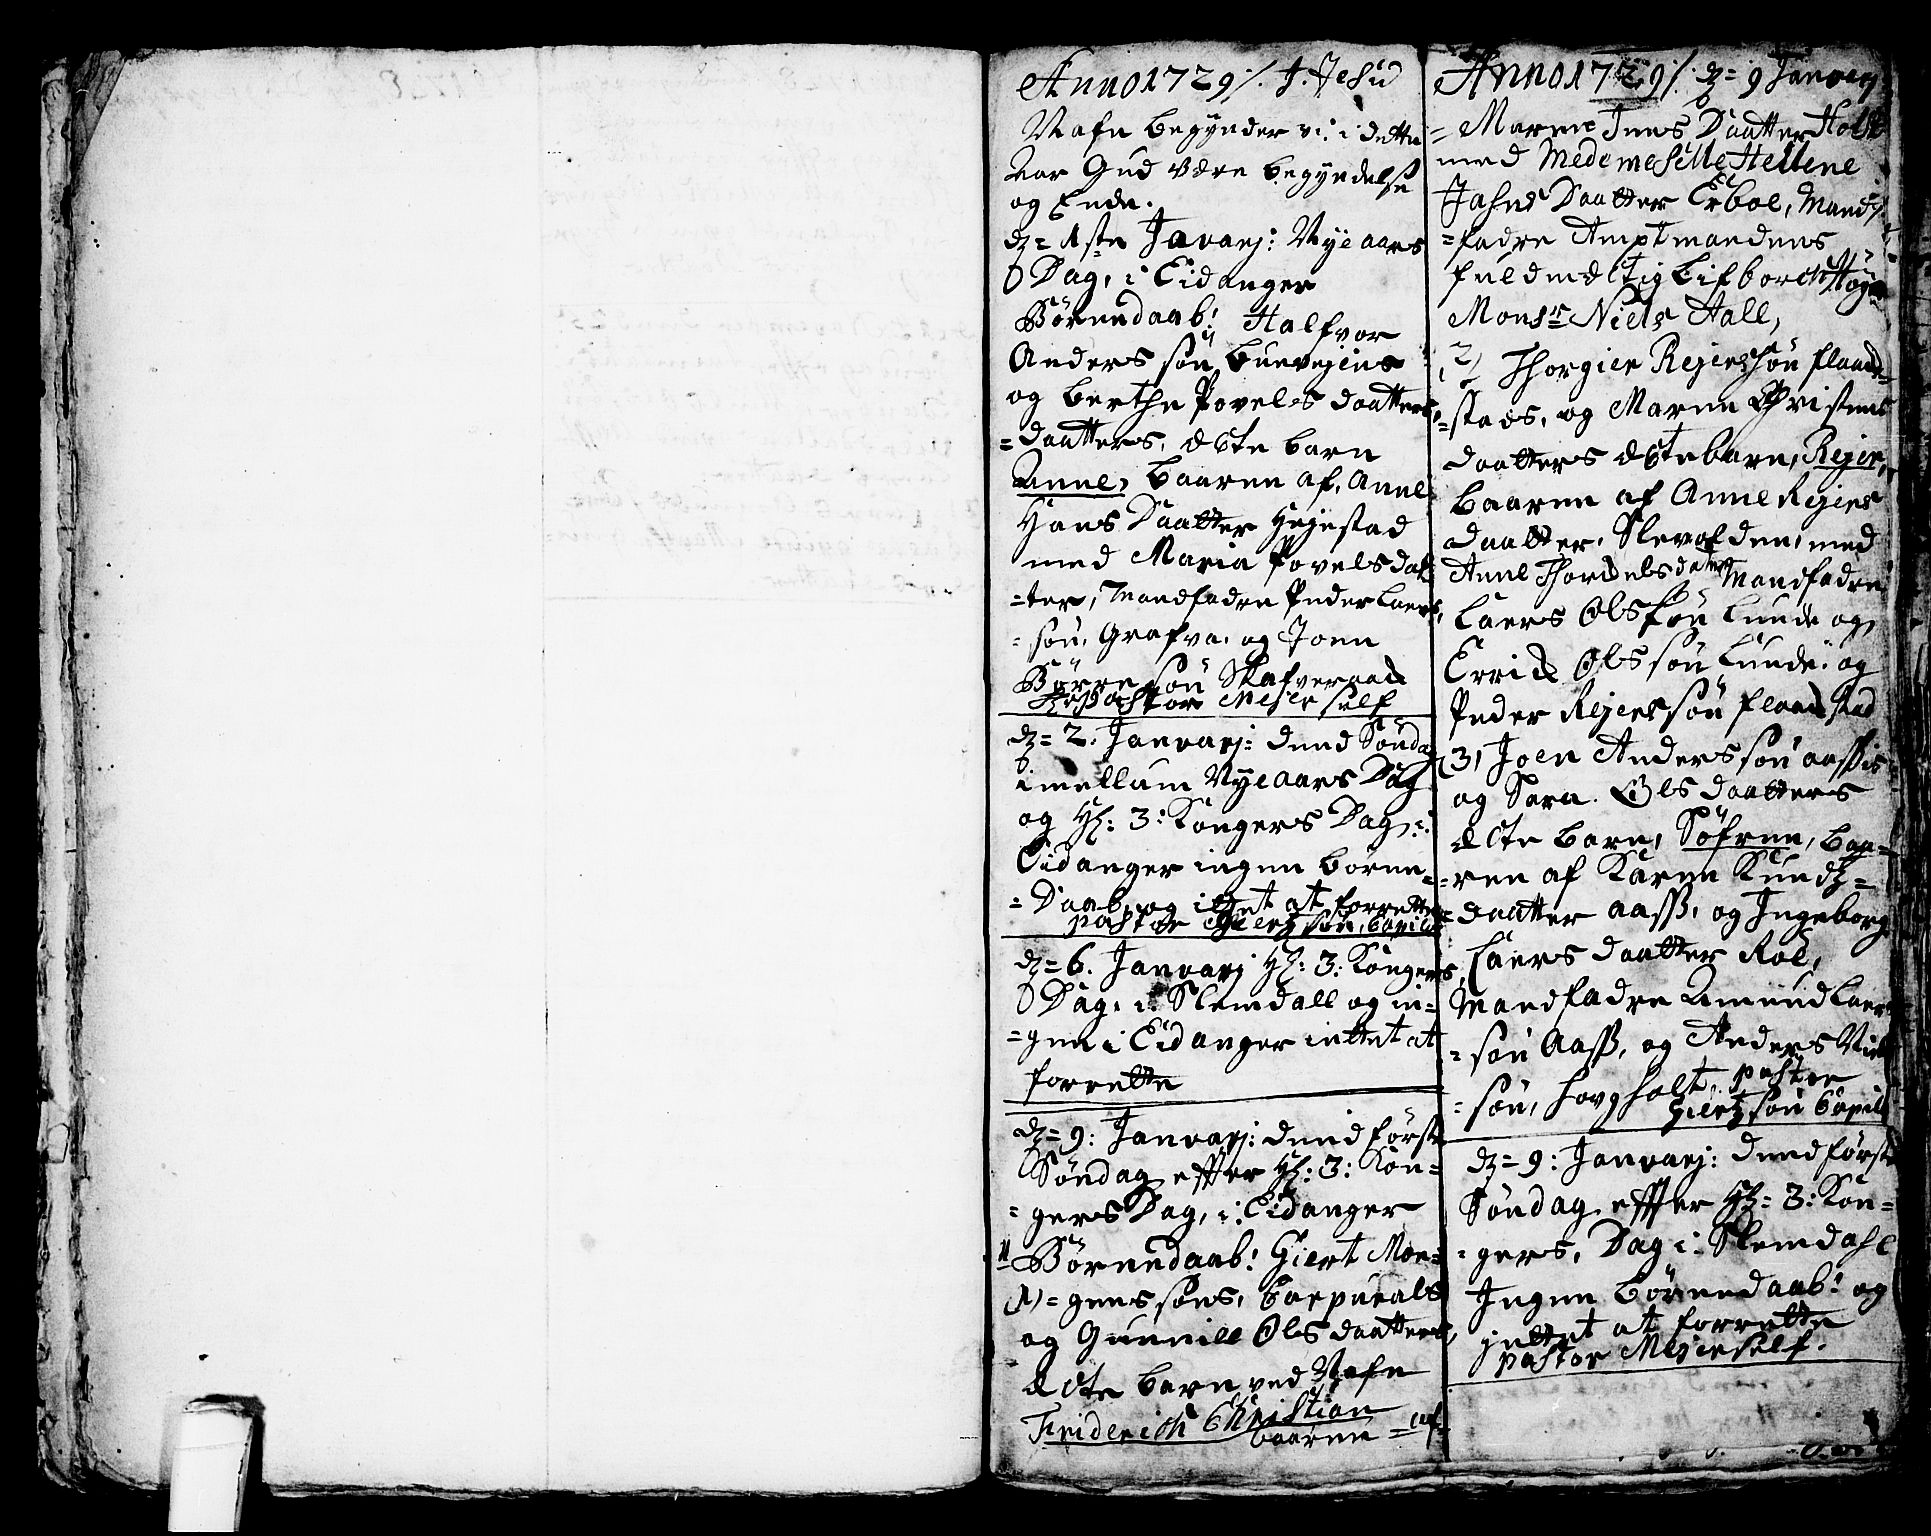 Anno 1729/. J. Jesu
Nafn begynder vi i dette
Aar Gud være begyndelse
og Ende.
d= 1ste Januarj: Nyeaars
Dag, i Eidanger
Børnedaab! Halfvor
Anders søn Bunvejens
og Berthe Povels daatters
=daatters, ecte barn
Anne, baaren af, Anne
Hans Daatter Hejestad
med Maria Povelsdat
=ter, Mandfadre Peder Laers
=søn, Grafva, og Joen
Børre søn Skafveraad
Pastor Mejer self
d= 2. Januarj: Dend Søndag
imellum Nyeaars Dag
og H: 3: Kongers Dag, i:
Eidanger ingen børne=
=Daab, og intet at forrette
pastor Giertz søn, Capil
d= 6. Januarj H: 3: Kongers
Dag, i Slemdall og in=
=gen i Eidanger inttet at
forrette
d= 9: Januarj: dend første
Søndag effter H: 3: Kon=
=gers Dag, i: Eidanger
Børnedaab! Giert Mon=
1) =gens søns, Corpurals
og Gunnild Ols daatters,
ecte barn ved Nafn
Friderich Christian
baaren =af=
Anno 1729/. d= 9 Januarj
=Maren Jens Daatter Holt
med Medemeselle Hellene
Jahns Daatter Erboe, Mand
=fadre Amptmandens
fuldmectig
Monsr Niels Hall,
2) Thorgier Rejerssøn flaad=
=stads, og Maren Christens
daatters ectebarn, Rejer,
baaren af Anne Rejers
daatter, Slevolden, med
Anne Thordelsdatter Mandfadre
Laers Ols søn Lunde og
Errick Ols søn Lunde: og
Peder Rejers søn flaadstad
3) Joen Anders søn aasses
og Sara. Ols daatters
ecte barn, Søfren, baa=
=ren af Karen Knudz=
=daatter aass, og Ingeborg
Laers daatter Røe,
Mandfadre Amund Laers
=søn Aass, og Anders Niels
=søn, hovgholt, pastor
Giertz søn Capil
d= 9: Januarj: dend første
Søndag effter H: 3: Kon=
=gers, Dag i: Slemdahl
Ingen børnedaab! og
jntet at forrette
pastor Mejer self.